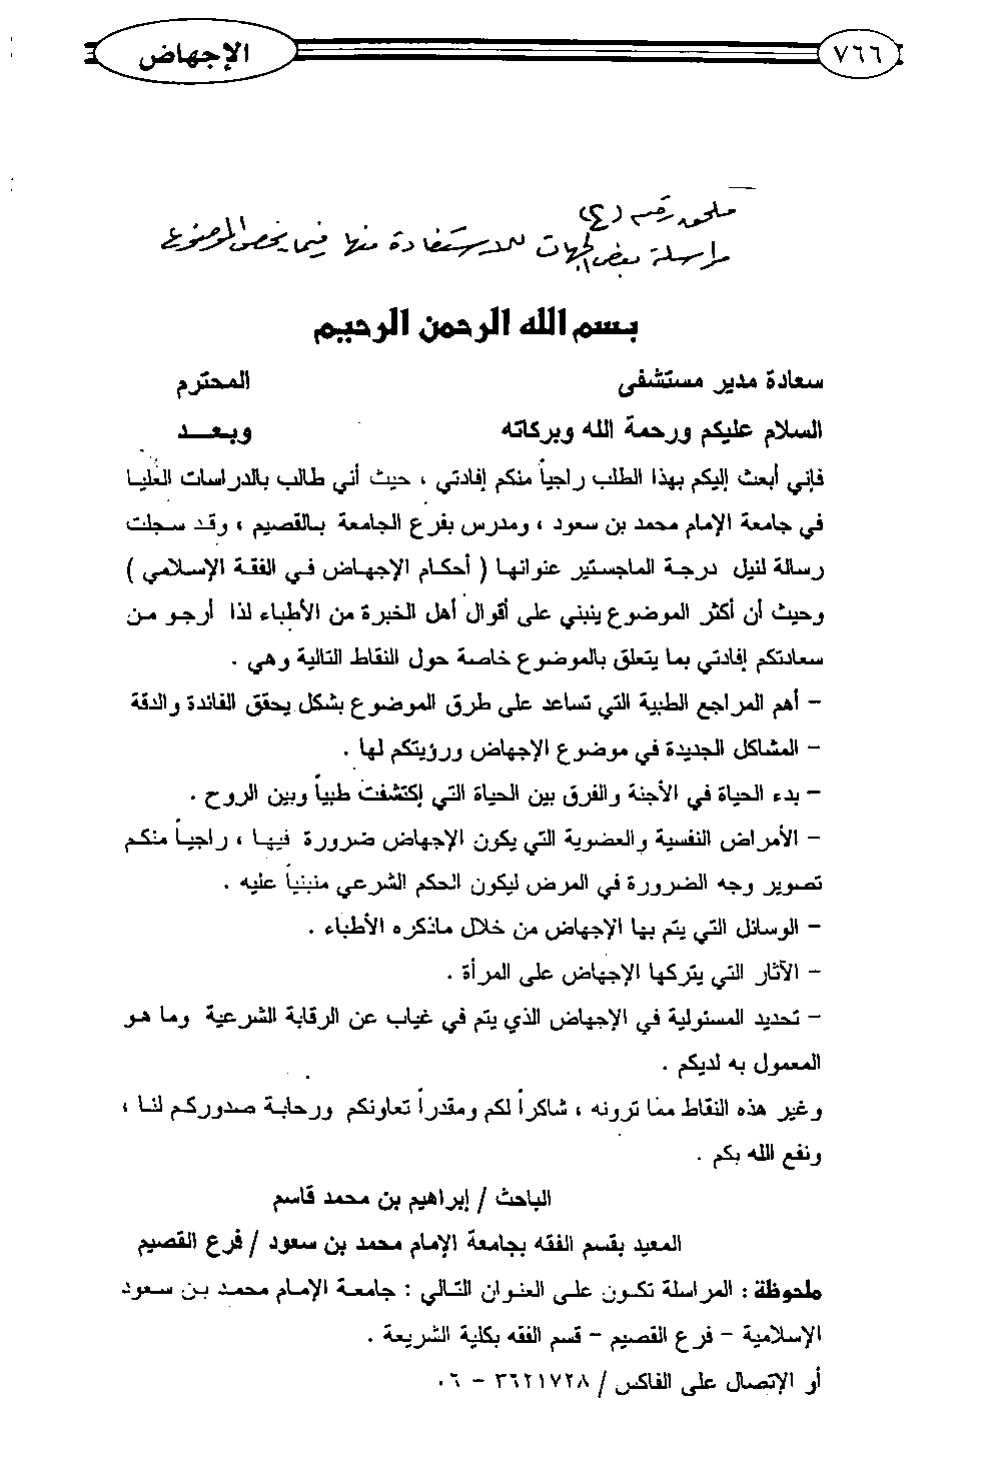 ٧٦٦
الإجهاض
ملحق رقم (٤)
مراسلة بعض الجهات للاستفادة منها فيما يخص الموضوع
بسم الله الرحمن الرحيم
سعادة مدير مستشفى المحترم
السلام عليكم ورحمة الله وبركاته وبعـــد
فإني أبعث إليكم بهذا الطلب راجياً منكم إفادتي ، حيث أني طالب بالدراسات العليا
في جامعة الإمام محمد بن سعود ، ومدرس بفرع الجامعة بالقصيم ، وقد سجلت
رسالة لنيل درجة الماجستير عنوانها ( أحكام الإجهاض في الفقة الإسلامي )
وحيث أن أكثر الموضوع ينبني على أقوال أهل الخبرة من الأطباء لذا أرجو من
سعادتكم إفادتي بما يتعلق بالموضوع خاصة حول النقاط التالية وهي .
- أهم المراجع الطبية التي تساعد على طرق الموضوع بشكل يحقق الفائدة والدقة
- المشاكل الجديدة في موضوع الإجهاض ورؤيتكم لها .
- بدء الحياة في الأجنة والفرق بين الحياة التي إكتشفت طبياً وبين الروح .
- الأمراض النفسية والعضوية التي يكون الإجهاض ضرورة فيها ، راجياً منكم
تصوير وجه الضرورة في المرض ليكون الحكم الشرعي منبنياً عليه .
- الوسائل التي يتم بها الإجهاض من خلال ماذكره الأطباء .
- الآثار التي يتركها الإجهاض على المرأة .
- تحديد المسئولية في الإجهاض الذي يتم في غياب عن الرقابة الشرعية وما هو
المعمول به لديكم .
وغير هذه النقاط مما ترونه ، شاكراً لكم ومقدراً تعاونكم ورحابة صدوركم لنا ،
ونفع الله بكم .
الباحث / إبراهيم بن محمد قاسم
المعيد بقسم الفقه بجامعة الإمام محمد بن سعود / فرع القصيم
ملحوظة : المراسلة تكون على العنوان التالي : جامعة الإمام محمد بن سعود
الإسلامية - فرع القصيم - قسم الفقه بكلية الشريعة .
أو الإتصال على الفاكس / ٣٦٢١٧٢٨ - ٠٦